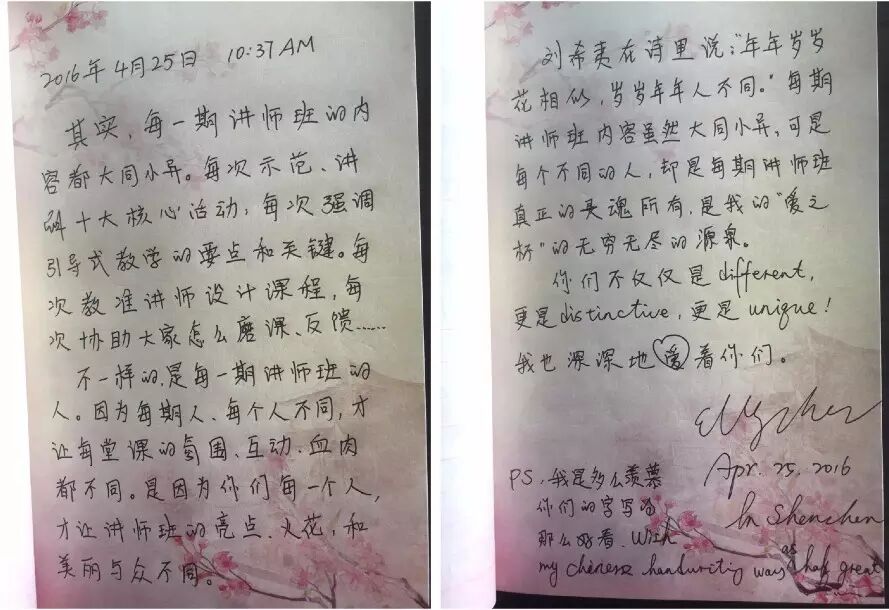 2016年4月25日 10:37AM
其实,每一期讲师班的内
容都大同小异。每次示范、讲
解十大核心活动,每次强调
引导式教学的要点和关键。每
次教准讲师设计课程,每
次协助大家怎么磨课、反馈……
不一样的,是每一期讲师班的
人。因为每期人、每个人不同,才
让每堂课的氛围、互动、血肉
都不同。是因为你们每一个人,
才让讲师班的亮点、火花,和
美丽与众不同。
刘希夷在诗里说:“年年岁岁
花相似,岁岁年年人不同。”每期
讲师班内容虽然大同小异,可是
每个不同的人,却是每期讲师班
真正的灵魂所有,是我的“爱之
杯”的无穷无尽的源泉。
你们不仅仅是different,
更是distinctive,更是unique!
我也深深地爱着你们。
Apr. 25, 2016
In Shenzhen
PS,我是多么羡慕
你们的字写的
那么好看. Wish
my Chinese handwriting was as half great